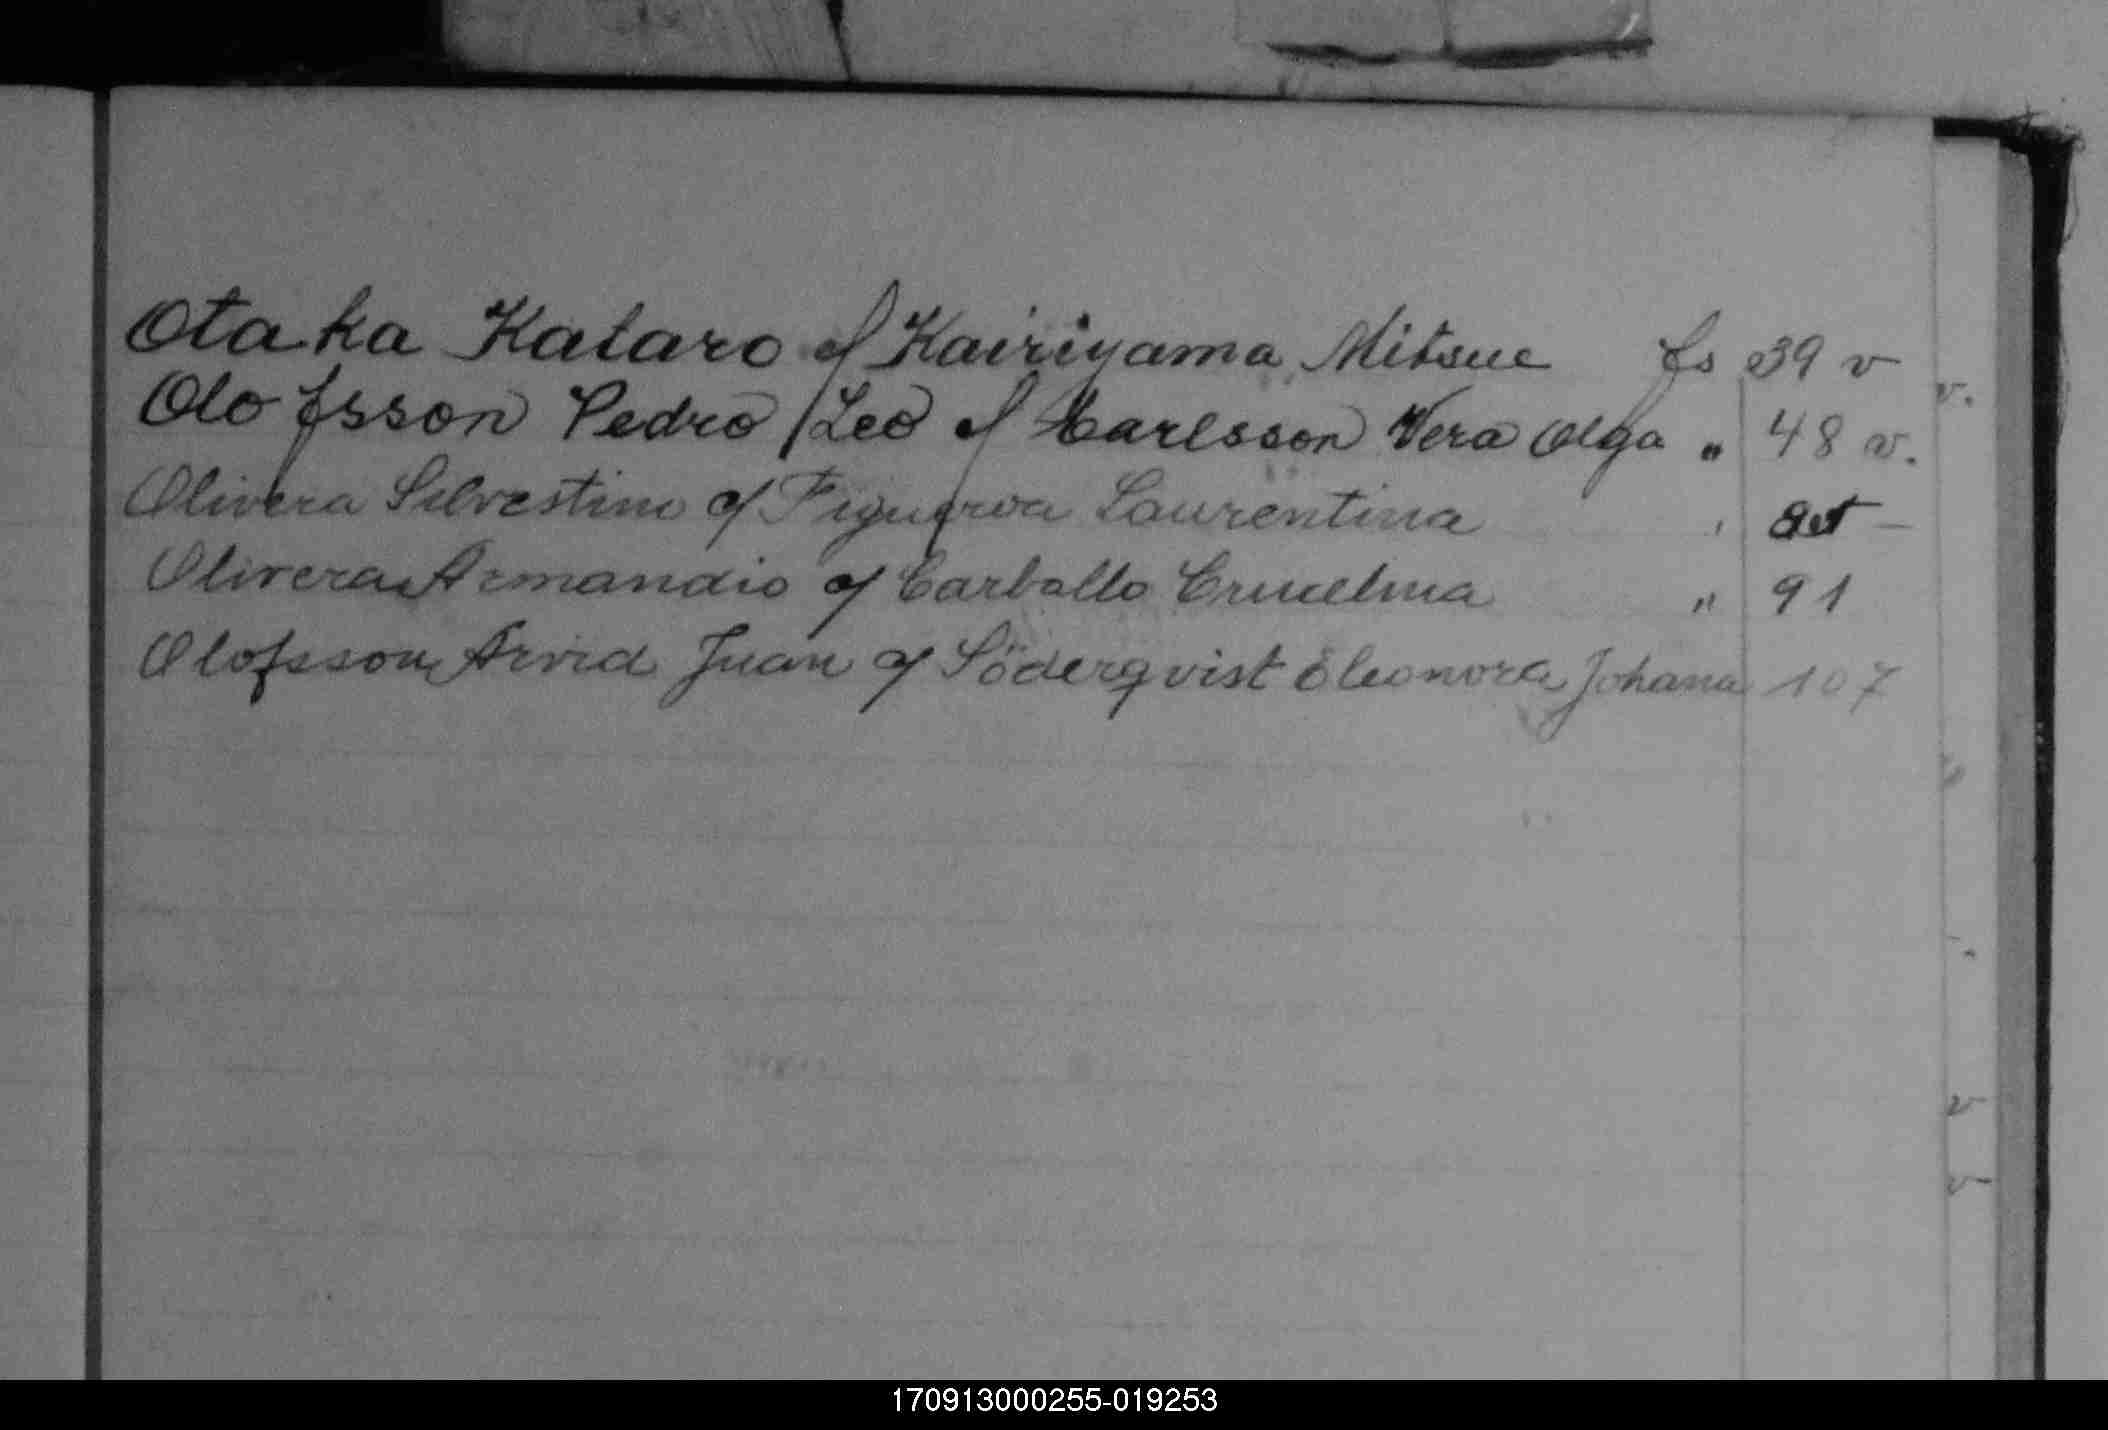 Otaka Kataro y Kairiyama Mitsue fs 39 v
Olofsson Pedro Leo y Carlsson Vera Olga " 48 v.
Olivera Silvestino y Figueroa Laurentina
Olivera Armandio y Carballo " 91
Olofsson Arvid Juan y Söderqvist Eleonora Johana 107
170913000255-019253